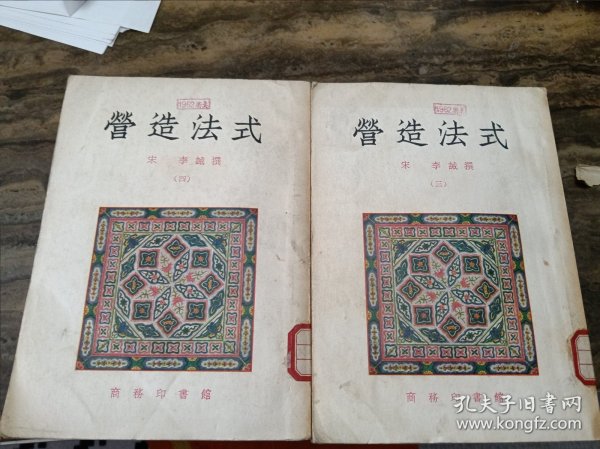 營造法式
宋 李誡撰
(四)
商務印書館
營造法式
宋 李誡撰
(三)
商務印書館
孔夫子旧书网
www.kongfz.com